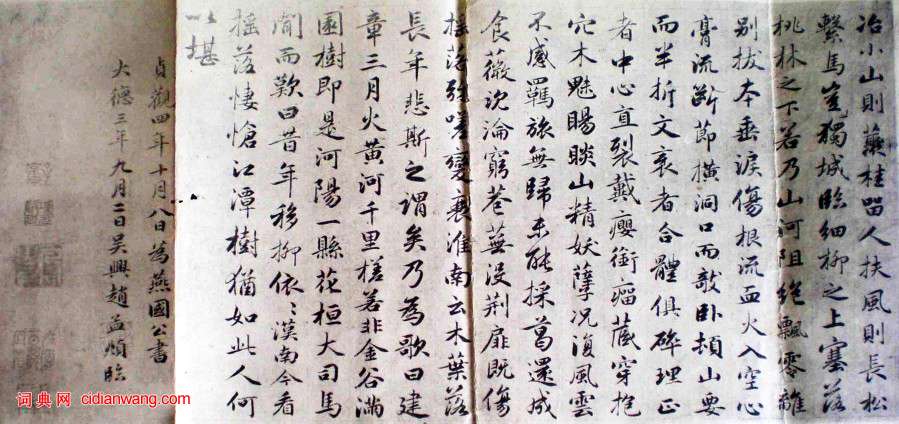 冶小山則叢桂留人扶風則長松
繫馬豈獨城臨細柳之上塞落
桃林之下若乃山河阻絕飄零離
別拔本垂淚傷根流血火入空心
膏流斷節橫洞口而欹臥頓山要
而半折文衺者合體俱碎理正
者中心直裂戴癭銜瘤藏穿抱
穴木魅睗睒山精妖孽況復風雲
不感羈旅無歸未能採葛還成
食薇沉淪窮巷蕪沒荊扉既傷
搖落彌嗟變衰淮南云木葉落
長年悲斯之謂矣乃為歌曰建
章三月火黃河千里槎若非金谷滿
園樹即是河陽一縣花桓大司馬
聞而歎曰昔年移柳依〻漢南今看
搖落悽愴江潭樹猶如此人何
以堪
貞觀四年十月八日為燕國公書
大德三年九月二日吳興趙孟頫臨
词典网 cidianwang.com